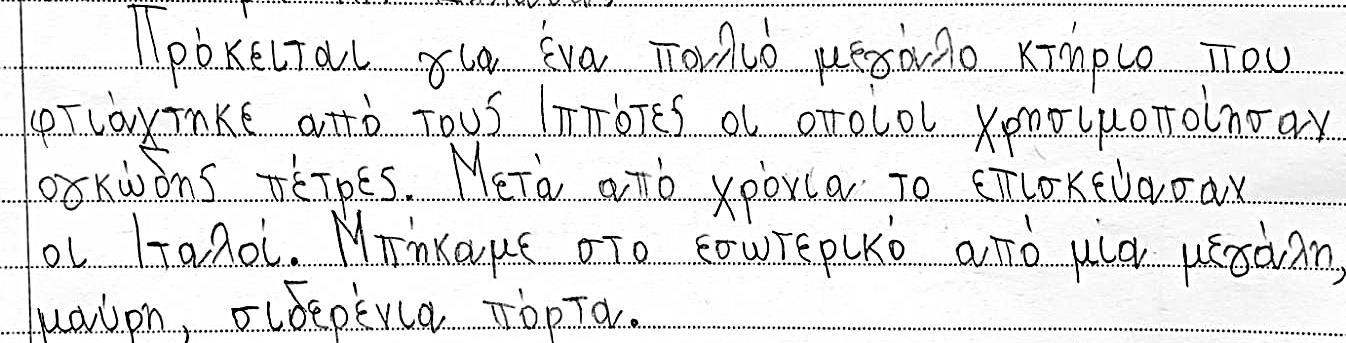 Πρόκειται για ένα παλιό μεγάλο κτήριο που
φτιάχτηκε από τους Ιππότες οι οποίοι χρησιμοποίησαν
ογκώδης πέτρες. Μετά από χρόνια το επισκεύασαν
οι Ιταλοί. Μπήκαμε στο εσωτερικό από μία μεγάλη,
μαύρη, σιδερένια πόρτα.